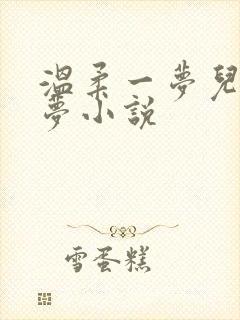 溫柔一夢兒
夢小說
雪蛋糕